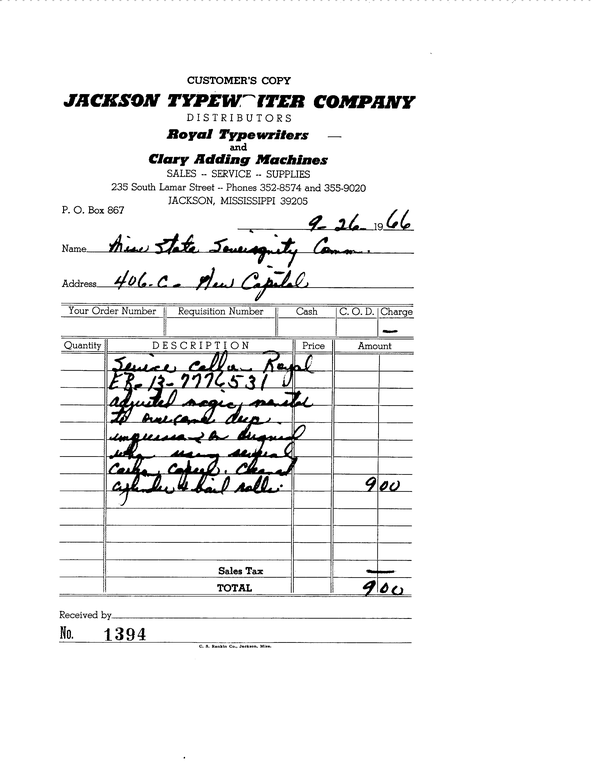 CUSTOMER'S COPY
JACKSON TYPEW ITER COMPANY
DISTRIBUTORS
Royal Typewriters —
and
Clary Adding Machines
SALES -- SERVICE -- SUPPLIES
235 South Lamar Street -- Phones 352-8574 and 355-9020
JACKSON, MISSISSIPPI 39205
P. O. Box 867
9-26- 1966
Name Miss State Sovereignty Comm.
Address 406-C- New Capitol
Your Order Number Requisition Number Cash C. O. D. Charge
—
Quantity DESCRIPTION Price Amount
Service call on Royal
EB-13-7776531
adjusted magic
to deep
impression on
when using several
Carbon Copies. Cleaned
Cylinder & bail rolls. 9 00
Sales Tax —
TOTAL 9 00
Received by
No. 1394
C. S. Rankin Co., Jackson, Miss.